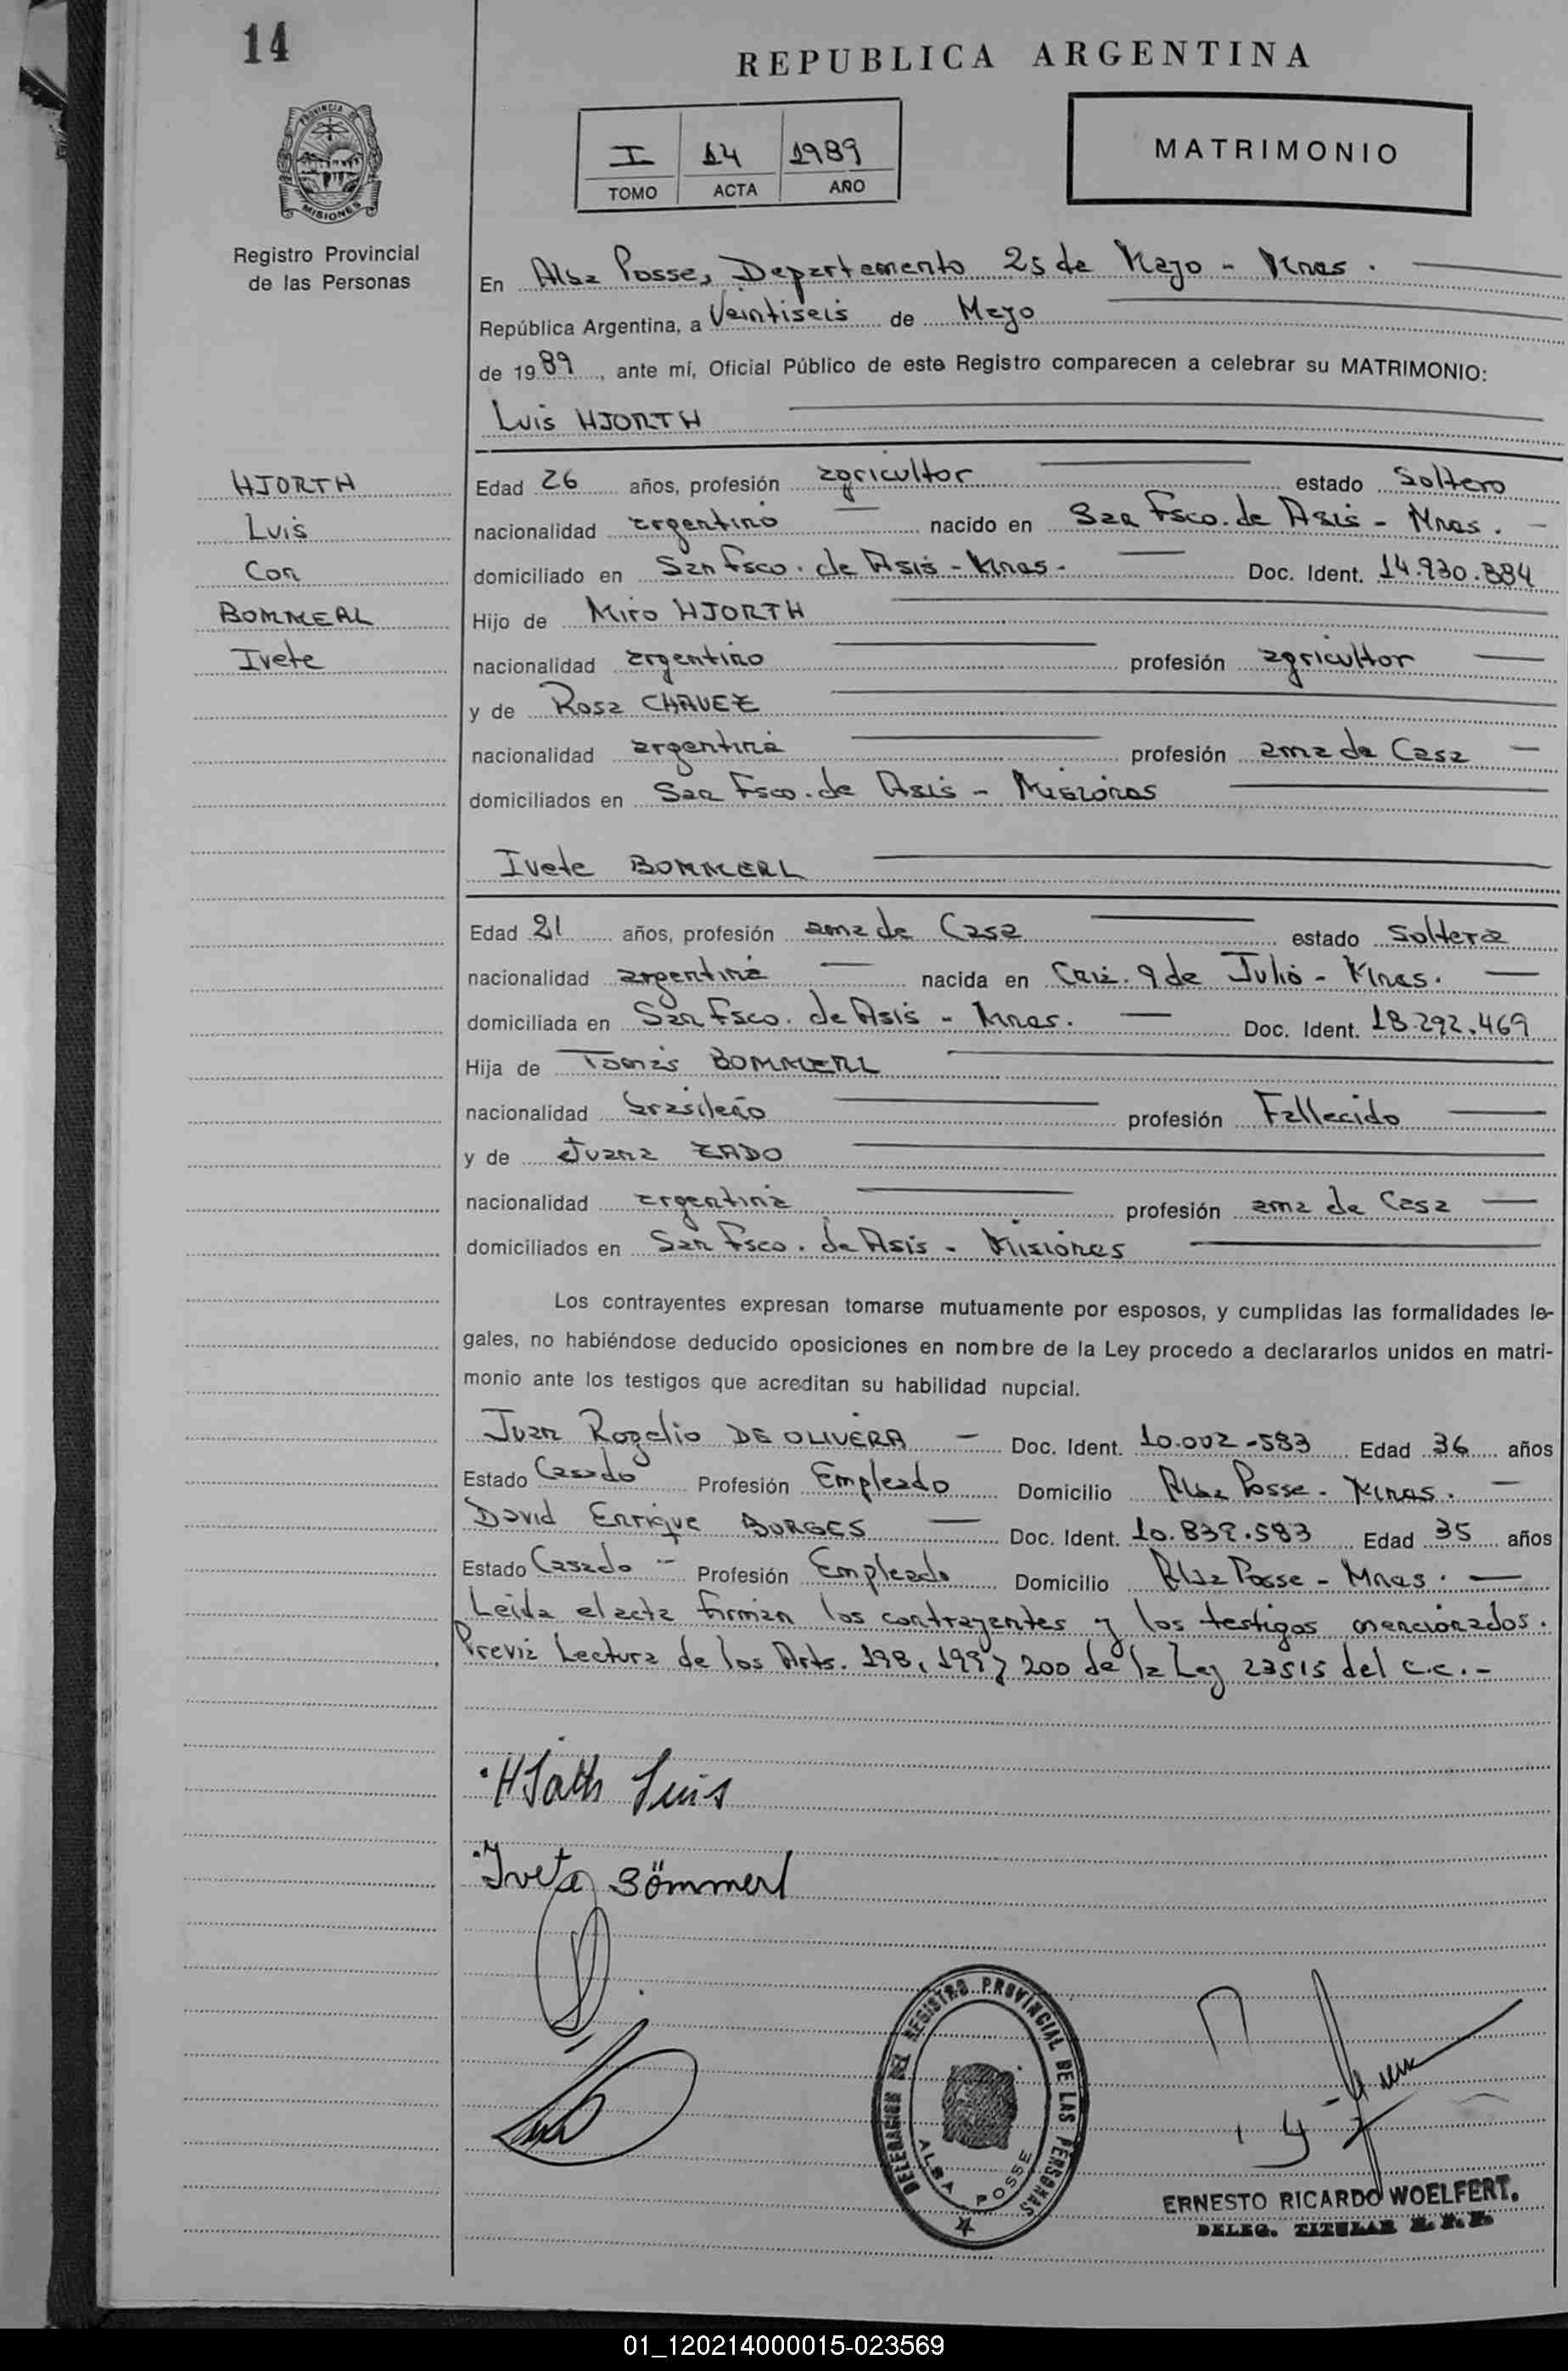 14
REPUBLICA ARGENTINA
PROVINCIA DE
MISIONES
I 14 1989
TOMO ACTA AÑO
MATRIMONIO
Registro Provincial
de las Personas
En Alba Posse, Departamento 25 de Mayo - Mnes.
República Argentina, a Veintiseis de Mayo
de 1989, ante mí, Oficial Público de este Registro comparecen a celebrar su MATRIMONIO:
Luis HJORTH
HJORTH
Luis
Con
BOMMERL
Ivete
Edad 26 años, profesión agricultor estado Soltero
nacionalidad argentino nacido en San Fsco. de Asis - Mnes.
domiciliado en San Fsco. de Asis - Mnes. Doc. Ident. 14.930.884
Hijo de Miro HJORTH
nacionalidad argentino profesión agricultor
y de Rosa CHAVEZ
nacionalidad argentina profesión ama de Casa
domiciliados en San Fsco. de Asis - Misiones
Ivete BOMMERL
Edad 21 años, profesión ama de Casa estado Soltera
nacionalidad argentina nacida en 9 de Julio - Mnes.
domiciliada en San Fsco. de Asis - Mnes. Doc. Ident. 18.292.469
Hija de Tomás BOMMERL
nacionalidad brasileño profesión Fallecido
y de Juana ZADO
nacionalidad argentina profesión ama de Casa
domiciliados en San Fsco. de Asis - Misiones
Los contrayentes expresan tomarse mutuamente por esposos, y cumplidas las formalidades le-
gales, no habiéndose deducido oposiciones en nombre de la Ley procedo a declararlos unidos en matri-
monio ante los testigos que acreditan su habilidad nupcial.
Juan Rogelio DE OLIVERA Doc. Ident. 10.002-583 Edad 36 años
Estado Casado Profesión Empleado Domicilio Alba Posse - Mnes.
David Enrique BORGES Doc. Ident. 10.839.583 Edad 35 años
Estado Casado Profesión Empleado Domicilio Alba Posse - Mnes.
Leida el acta firman los contrayentes y los testigos mencionados.
Previa Lectura de los Arts. 198, 199 y 200 de la Ley 23515 del c.c.-
Hjorth Luis
Ivete Bömmerl
DELEGACION DEL REGISTRO PROVINCIAL DE LAS PERSONAS
ALBA POSSE
ERNESTO RICARDO WOELFERT.
DELEG. TITULAR R. P. P.
01_120214000015-023569